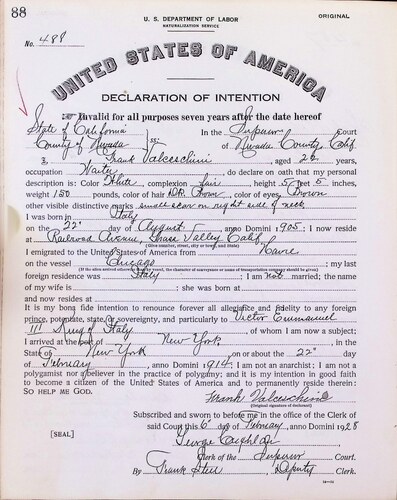 88
U. S. DEPARTMENT OF LABOR
NATURALIZATION SERVICE
ORIGINAL
No. 488
UNITED STATES OF AMERICA
DECLARATION OF INTENTION
Invalid for all purposes seven years after the date hereof
State of California
County of Nevada ss:
In the Superior Court
of Nevada County, Calif.
I, Frank Valceschini, aged 22 years,
occupation Waiter, do declare on oath that my personal
description is: Color White, complexion fair, height 5 feet 5 inches,
weight 150 pounds, color of hair Brown, color of eyes Brown
other visible distinctive marks small scar on right side of neck
I was born in Italy
on the 22" day of August, anno Domini 1905; I now reside
at Railroad Avenue, Grass Valley Calif.
(Give number, street, city or town, and State)
I emigrated to the United States of America from Havre
on the vessel Chicago; my last
(If the alien arrived otherwise than by vessel, the character of conveyance or name of transportation company should be given)
foreign residence was Italy; I am not married; the name
of my wife is; she was born at
and now resides at
It is my bona fide intention to renounce forever all allegiance and fidelity to any foreign
prince, potentate, state, or sovereignty, and particularly to Victor Emmanuel
III King of Italy, of whom I am now a subject;
I arrived at the port of New York, in the
State of New York on or about the 22" day
of February, anno Domini 1914; I am not an anarchist; I am not a
polygamist nor a believer in the practice of polygamy; and it is my intention in good faith
to become a citizen of the United States of America and to permanently reside therein:
SO HELP ME GOD.
Frank Valceschini
(Original signature of declarant)
Subscribed and sworn to before me in the office of the Clerk of
said Court this 6 day of February, anno Domini 1928
[SEAL]
George
Clerk of the Superior Court.
By Frank Steel Deputy Clerk.